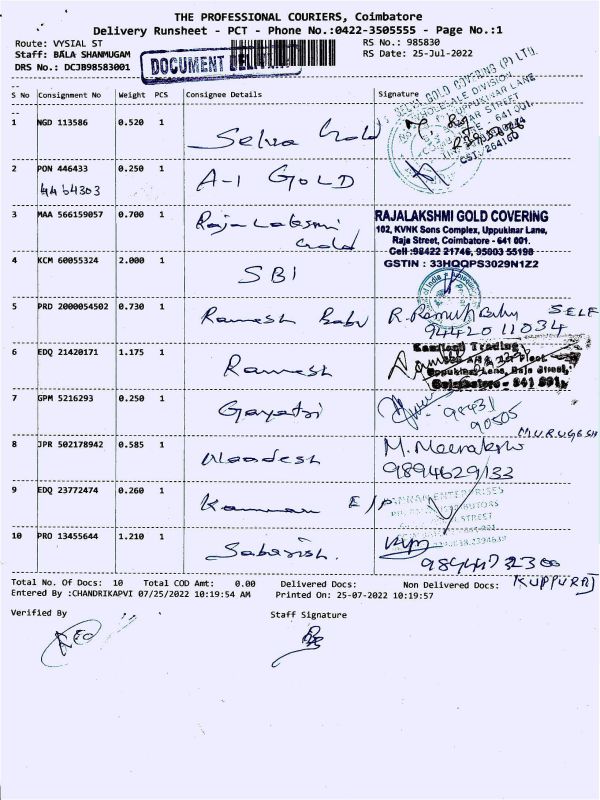 THE PROFESSIONAL COURIERS, Coimbatore
Delivery Runsheet - PCT - Phone No.:0422-3505555 - Page No.:1
Route: VYSIAL ST RS No.: 985830
Staff: BALA SHANMUGAM RS Date: 25-Jul-2022
DRS No.: DCJB98583001 DOCUMENT
S No Consignment No Weight PCS Consignee Details Signature
1 NGD 113586 0.520 1 Selva Gold
2 PON 446433 0.250 1 A-1 GOLD
4464303
3 MAA 566159057 0.700 1 Rajalakshmi Gold
RAJALAKSHMI GOLD COVERING
102, KVNK Sons Complex, Uppukinar Lane,
Raja Street, Coimbatore - 641 001.
Cell :98422 21746, 95003 55198
GSTIN : 33HQQPS3029N1Z2
4 KCM 60055324 2.000 1 SBI
5 PRD 2000054502 0.730 1 Ramesh Babu R. Ramesh Babu SELF
9442011034
6 EDQ 21420171 1.175 1 Ramesh
Trading
Uppukinar Lane, Raja Street,
Coimbatore - 641 001.
7 GPM 5216293 0.250 1 Gayatri 98431
90505
MURUGESH
8 JPR 502178942 0.585 1 M. Meenakshi
9894629133
9 EDQ 23772474 0.260 1 Kannan E/P
10 PRO 13455644 1.210 1 Sabarish.
KUPPURAJ
Total No. Of Docs: 10 Total COD Amt: 0.00 Delivered Docs: Non Delivered Docs:
Entered By :CHANDRIKAPVI 07/25/2022 10:19:54 AM Printed On: 25-07-2022 10:19:57
Verified By Staff Signature